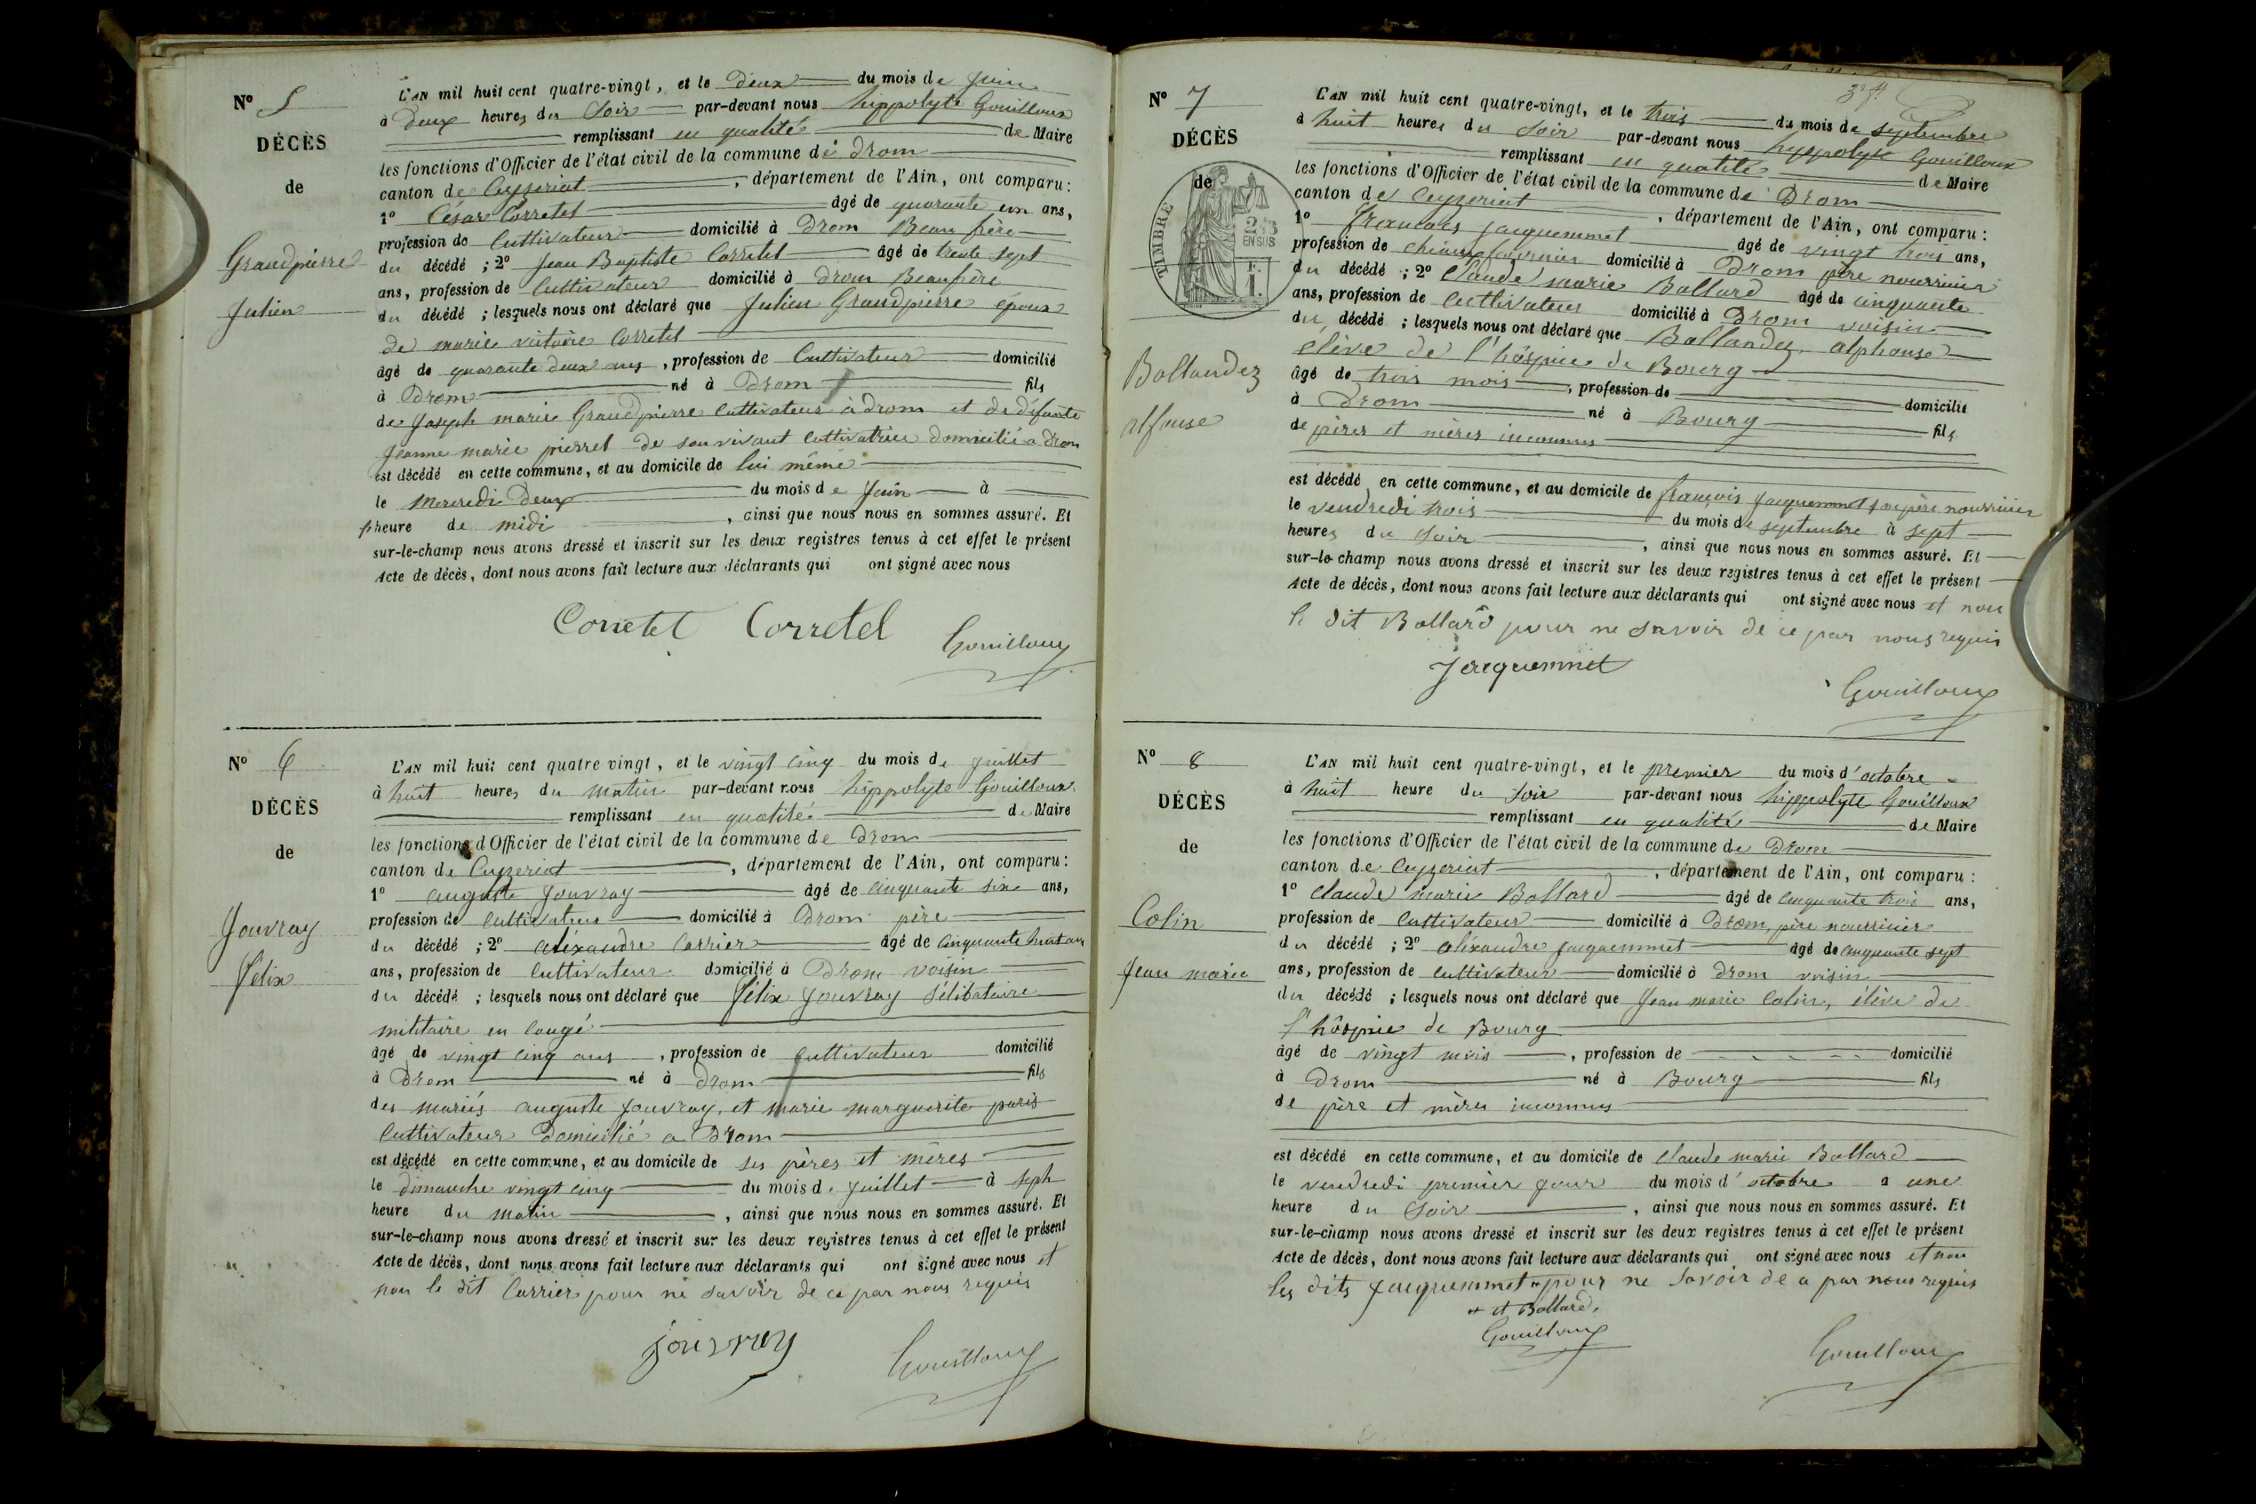 N° 5
DÉCÈS
de
Grandpierre
Julien
L'AN mil huit cent quatre-vingt, et le deux du mois de Juin
à deux heures du soir par-devant nous hippolyte Gouilloux
remplissant en qualité de Maire
les fonctions d'Officier de l'état civil de la commune de drom
canton de Ceyzeriat, département de l'Ain, ont comparu:
1° César Corretel âgé de quarante un ans,
profession de Cultivateur domicilié à Drom Beau frère
du décédé ; 2° Jean Baptiste Corretel âgé de trente sept
ans, profession de Cultivateur domicilié à drom Beaufrère
du décédé ; lesquels nous ont déclaré que Julien Grandpierre époux
de marie victoire Corretel
âgé de quarante deux ans, profession de Cultivateur domicilié
à Drom né à Drom fils
de Joseph marie Grandpierre Cultivateur à drom et de défunte
Jeanne marie pierrel de son vivant Cultivatrice domicilié a drom
est décédé en cette commune, et au domicile de lui même
le mercredi deux du mois de Juin à
heure de midi, ainsi que nous nous en sommes assuré. Et
sur-le-champ nous avons dressé et inscrit sur les deux registres tenus à cet effet le présent
Acte de décès, dont nous avons fait lecture aux déclarants qui ont signé avec nous
Corretel Corretel Gouilloux
N° 6
DÉCÈS
de
Jouvray
Félix
L'AN mil huit cent quatre vingt, et le vingt cinq du mois de Juillet
à huit heures du matin par-devant nous hippolyte Gouilloux
remplissant en qualité de Maire
les fonctions d'Officier de l'état civil de la commune de Drom
canton de Ceyzeriat, département de l'Ain, ont comparu:
1° auguste Jouvray âgé de cinquante six ans,
profession de Cultivateur domicilié à Drom père
du décédé ; 2° aléxandre Carrier âgé de cinquante huit ans
ans, profession de Cultivateur domicilié à Drom voisin
du décédé ; lesquels nous ont déclaré que Félix Jouvray sélibataire
militaire en congé
âgé de vingt cinq ans, profession de Cultivateur domicilié
à Drom né à drom fils
des mariés auguste Jouvray, et marie marguerite paris
Cultivateur Domicilié a Drom
est décédé en cette commune, et au domicile de ses pères et mères
le dimanche vingt cinq du mois de Juillet à sept
heure du matin, ainsi que nous nous en sommes assuré. Et
sur-le-champ nous avons dressé et inscrit sur les deux registres tenus à cet effet le présent
Acte de décès, dont nous avons fait lecture aux déclarants qui ont signé avec nous et
non le dit Carrier pour ne savoir de ce par nous requis
Jouvray Gouilloux
N° 7
DÉCÈS
de
TIMBRE
2/10
EN SUS
F.
1.
Ballandez
alfonse
L'AN mil huit cent quatre-vingt, et le trois du mois de septembre
à huit heures du soir par-devant nous hyppolyte Gouilloux
remplissant en qualité de Maire
les fonctions d'Officier de l'état civil de la commune de Drom
canton de Ceyzeriat, département de l'Ain, ont comparu:
1° François Jacquemmet âgé de vingt trois ans,
profession de domicilié à Drom père nourricier
du décédé ; 2° Claude marie Ballard âgé de cinquante
ans, profession de Cultivateur domicilié à Drom voisin
du décédé ; lesquels nous ont déclaré que Ballandez, alphonse
elève de l'hôspice de Bourg
âgé de trois mois, profession de domicilié
à Drom né à Bourg fils
de pères et mères inconnus
est décédé en cette commune, et au domicile de françois Jacquemmet son père nourricier
le vendredi trois du mois de septembre à sept
heures du soir, ainsi que nous nous en sommes assuré. Et
sur-le-champ nous avons dressé et inscrit sur les deux registres tenus à cet effet le présent
Acte de décès, dont nous avons fait lecture aux déclarants qui ont signé avec nous et non
le dit Ballard pour ne savoir de ce par nous requis
Jacquemmet
Gouilloux
N° 8
DÉCÈS
de
Colin
Jean marie
L'AN mil huit cent quatre-vingt, et le premier du mois d'octobre
à huit heure du soir par-devant nous hippolyte Gouilloux
remplissant en qualité de Maire
les fonctions d'Officier de l'état civil de la commune de Drom
canton de Ceyzeriat, département de l'Ain, ont comparu:
1° Claude marie Ballard âgé de cinquante trois ans,
profession de Cultivateur domicilié à Drom, père nourricier
du décédé ; 2° aléxandre Jacquemmet âgé de cinquante sept
ans, profession de Cultivateur domicilié à drom voisin
du décédé ; lesquels nous ont déclaré que Jean marie Colin, élève de
l'hôspice de Bourg
âgé de vingt mois, profession de domicilié
à Drom né à Bourg fils
de père et mères inconnus
est décédé en cette commune, et au domicile de Claude marie Ballard
le vendredi premier jour du mois d'octobre a une
heure du soir, ainsi que nous nous en sommes assuré. Et
sur-le-champ nous avons dressé et inscrit sur les deux registres tenus à cet effet le présent
Acte de décès, dont nous avons fait lecture aux déclarants qui ont signé avec nous et non
les dits Jacquemmet pour ne savoir de ce par nous requis
et Ballard.
Gouilloux
Gouilloux